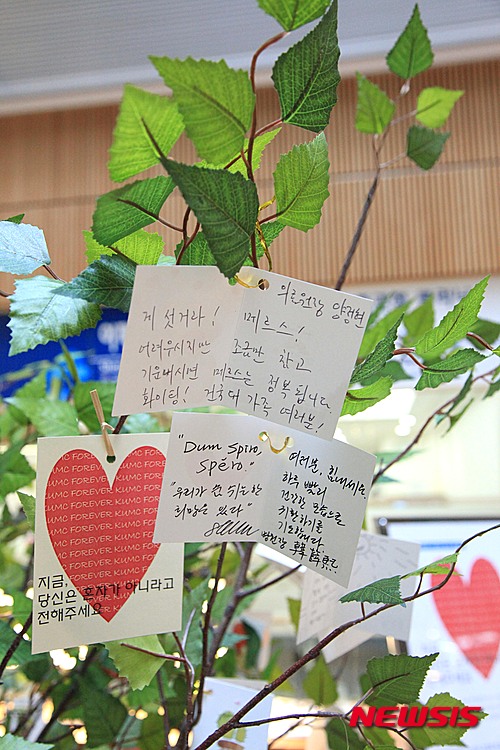 의료원장 양정현
게 섯거라! 메르스!
어려우시지만 조금만 참고
기운내시면 메르스는 정복됩니다.
화이팅! 건국대 가족 여러분!
"Dum spiro,
spéro."
"우리가 숨 쉬는 한
희망은 있다"
여러분, 힘내세요!
하루 빨리
건강한 모습으로
쾌환하기를
기도합니다.
병원장
KUMC FOREVER KUMC FOREVER
지금,
당신은 혼자가 아니라고
전해주세요
NEWSIS